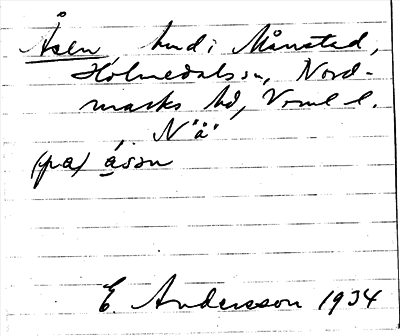 Åsen, hmd i Månstad,
Holmedals sn, Nord-
marks hd, Vrml l.
N"ä"
(pa) åsən
E. Andersson 1934